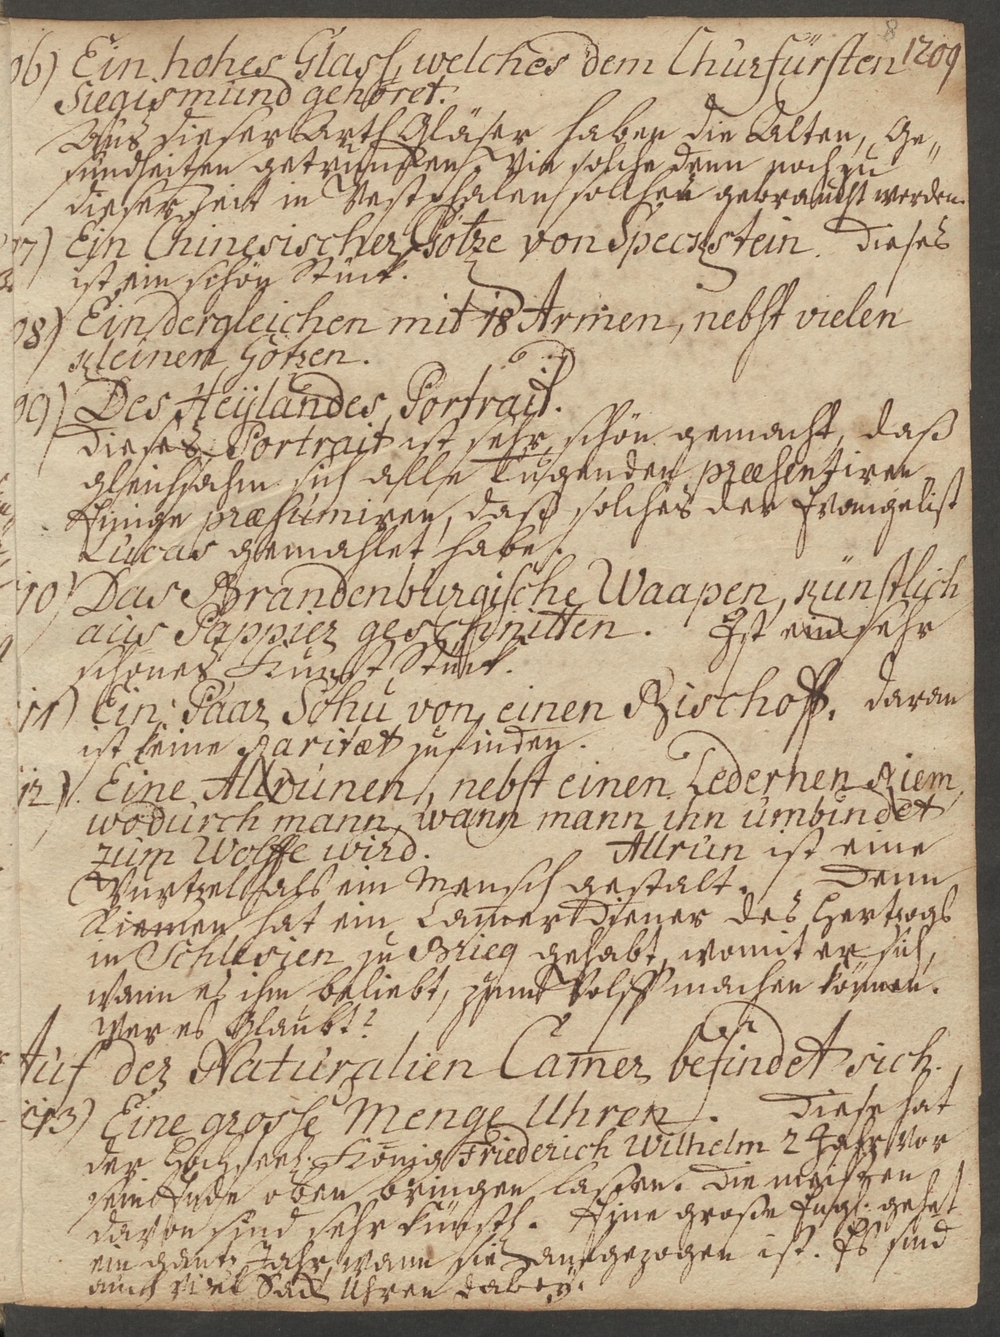 8
1209
06) Ein hohes Glass, welches dem Churfürsten
Siegismund gehöret.
Aus dieser Arth Gläser haben die Alten, Ge-
sundheiten getruncken. Wie solche denn noch zu
dieser Zeit in Westphalen sollen gebraucht werden.
07) Ein Chinesischer Götze von Speckstein. Dieses
ist ein schön Stück.
08) Ein dergleichen mit 18 Armen, nebst vielen
kleinern Götzen.
09) Des Heylandes Portrait.
Dieses Portrait ist sehr schön gemacht, daß
gleichsahm sich alle Tugenden præsentiren.
Einige præsumiren, daß solches der Evangelist
Lucas gemahlet habe.
10) Das Brandenburgische Waapen, künstlich
aus Pappier geschnitten. Ist ein sehr
schönes Kunst Stück.
11) Ein Paar Schu von einen Bischoff. daran
ist keine Raritæt zu finden.
12) Eine Allrunen, nebst einen Ledernen Riem,
wodurch mann, wann mann ihn umbindet
zum Wolffe wird. Allrun ist eine
Wurtzel als ein Mensch gestalt. Denn
Riemen hat ein Cam̄erdiener des Hertzogs
in Schlesien zu Brieg gehabt, womit er sich,
wann es ihm beliebt, zum Wolff machen können.
Wer es Glaubt?
Auf der Naturalien Cam̄er befindet sich.
13) Eine grosse Menge Uhren. Diese hat
der Hochseel. König Friederich Wilhelm 2 Jahr vor
sein Ende oben bringen lassen. Die meisten
davon sind sehr künstl. Eine große Engl. gehet
ein gantz Jahr wann sie aufgezogen ist. Es sind
auch viel Sack Uhren dabey.